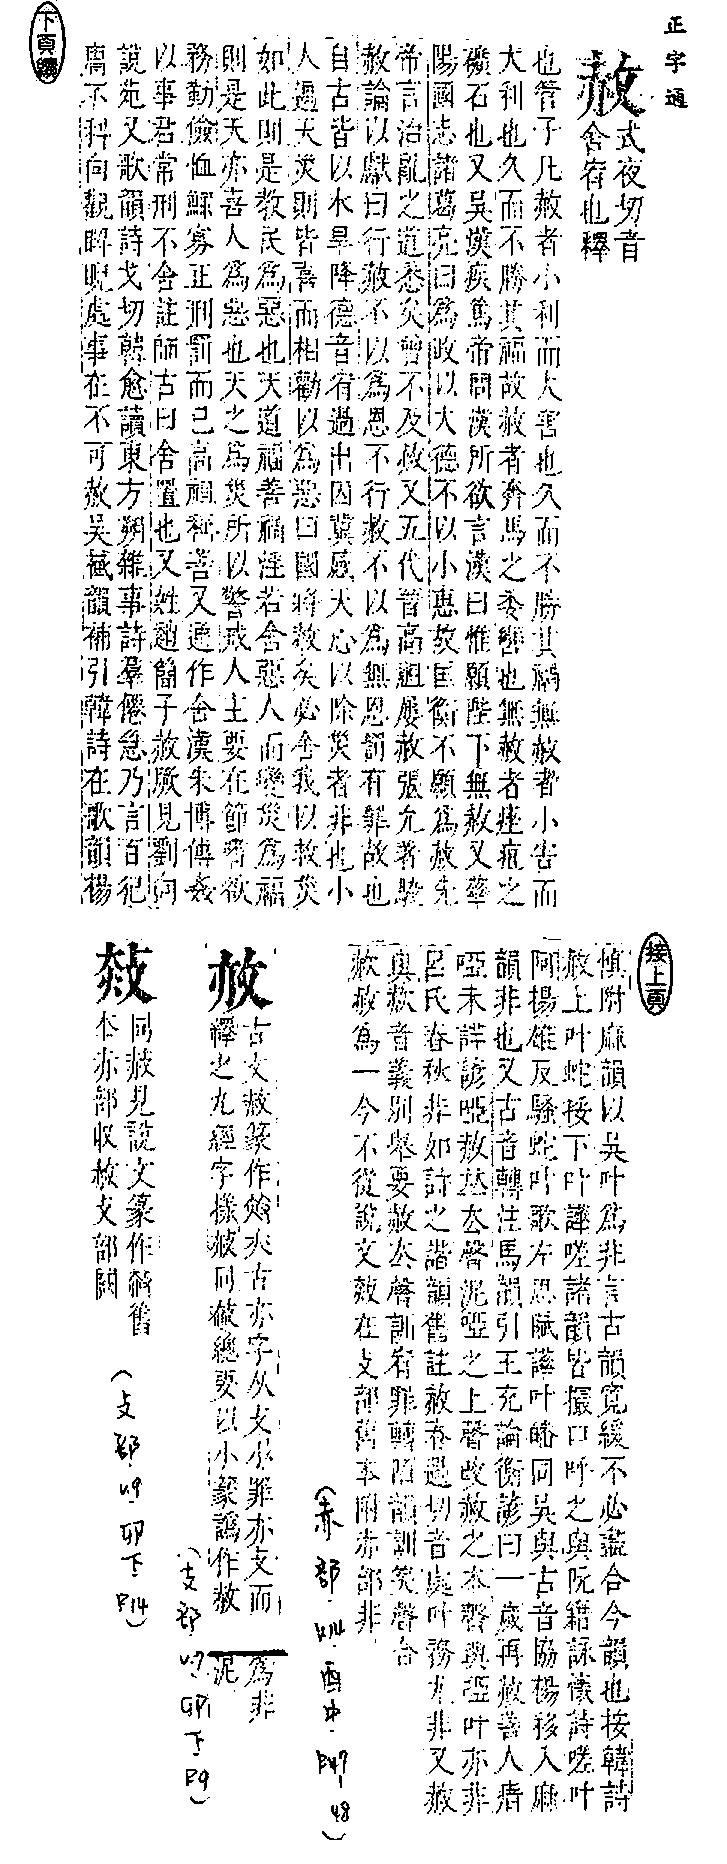 正字通
赦
式夜切音
舍宥也釋
也管子凡赦者小利而大害也久而不勝其禍無赦者小害而
大利也久而不勝其福故赦者奔馬之委轡也無赦者痤疽之
礦石也又吳漢疾篤帝問漢所欲言漢曰惟願陛下無赦又華
陽國志諸葛亮曰為政以大德不以小惠故匡衡不願為赦先
帝言治亂之道悉矣曾不及赦又五代晉高祖屢赦張允著駁
赦論以獻曰行赦不以為恩不行赦不以為無恩罰有罪故也
自古皆以水旱降德音宥過出囚冀感天心以除災者非也小
人遇天災則皆喜而相勸以為惡曰國將赦矣必舍我以救災
如此則是教民為惡也天道福善禍淫若舍惡人而變災為福
則是天亦喜人為惡也天之為災所以警戒人主要在節嗜欲
務勤儉恤鰥寡正刑罰而已高祖稱善又通作舍漢朱博傳姦
以事君常刑不舍註師古曰舍置也又姓趙簡子赦厥見劉向
說苑又歌韻詩戈切韓愈讀東方朔雜事詩羣僊急乃言百犯
庸不科向觀睥睨處事在不可赦吳棫韻補引韓詩在歌韻楊
下頁續
接上頁
慎附麻韻以吳叶為非言古韻寬緩不必盡合今韻也按韓詩
赦上叶蛇挼下叶譁嗟諸韻皆撮口呼之與阮籍詠懷詩嗟叶
阿揚雄反騷蛇叶歌左思賦譁叶皤同吳與古音協楊移入麻
韻非也又古音轉注馬韻引王充論衡諺曰一歲再赦善人瘖
啞未詳諺啞赦𠀤去聲泥啞之上聲改赦之本聲與啞叶亦非
呂氏春秋非如詩之諧韻舊註赦春遇切音處叶務尤非又赦
與赦音義別舉要赦去聲訓宥罪轉陌韻訓笑聲合
赦赦為一今不從說文敓在攴部舊本附赤部非
(赤部·酉中·P47-48)
赦
古文赦篆作 古亦字从攴 罪亦攴而
釋之九經字樣 同赦總要以小篆譌作赦 為非
泥
(攴部·卯下·P9)
敓
同赦見說文篆作 舊
本赤部收赦攴部闕
(攴部·卯下·P14)